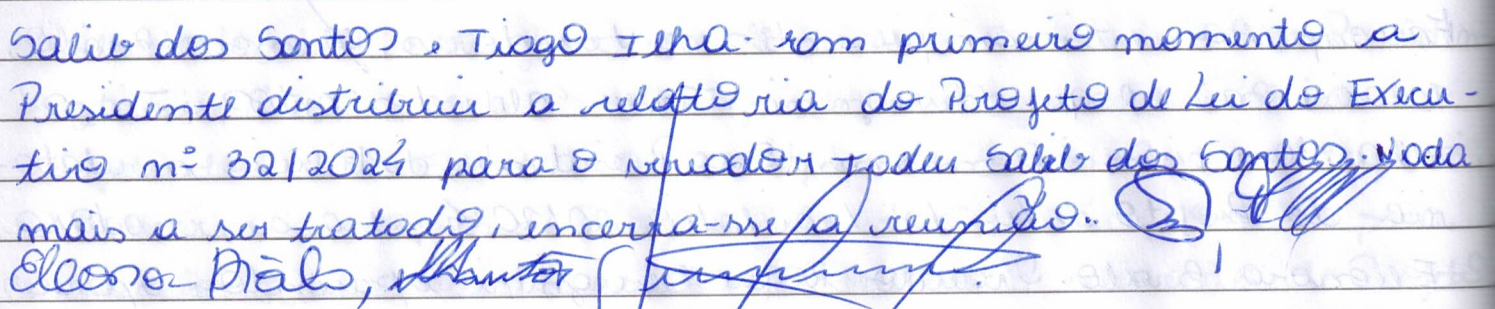 Salib dos Santos, Tiago Ilha. com primeiro momento a
Presidente distribuiu a relatoria do Projeto de Lei do Execu-
tivo nº 32/2024 para o vereador Jodeu Salib dos Santos. Nada
mais a ser tratado, encerra-se a reunião..